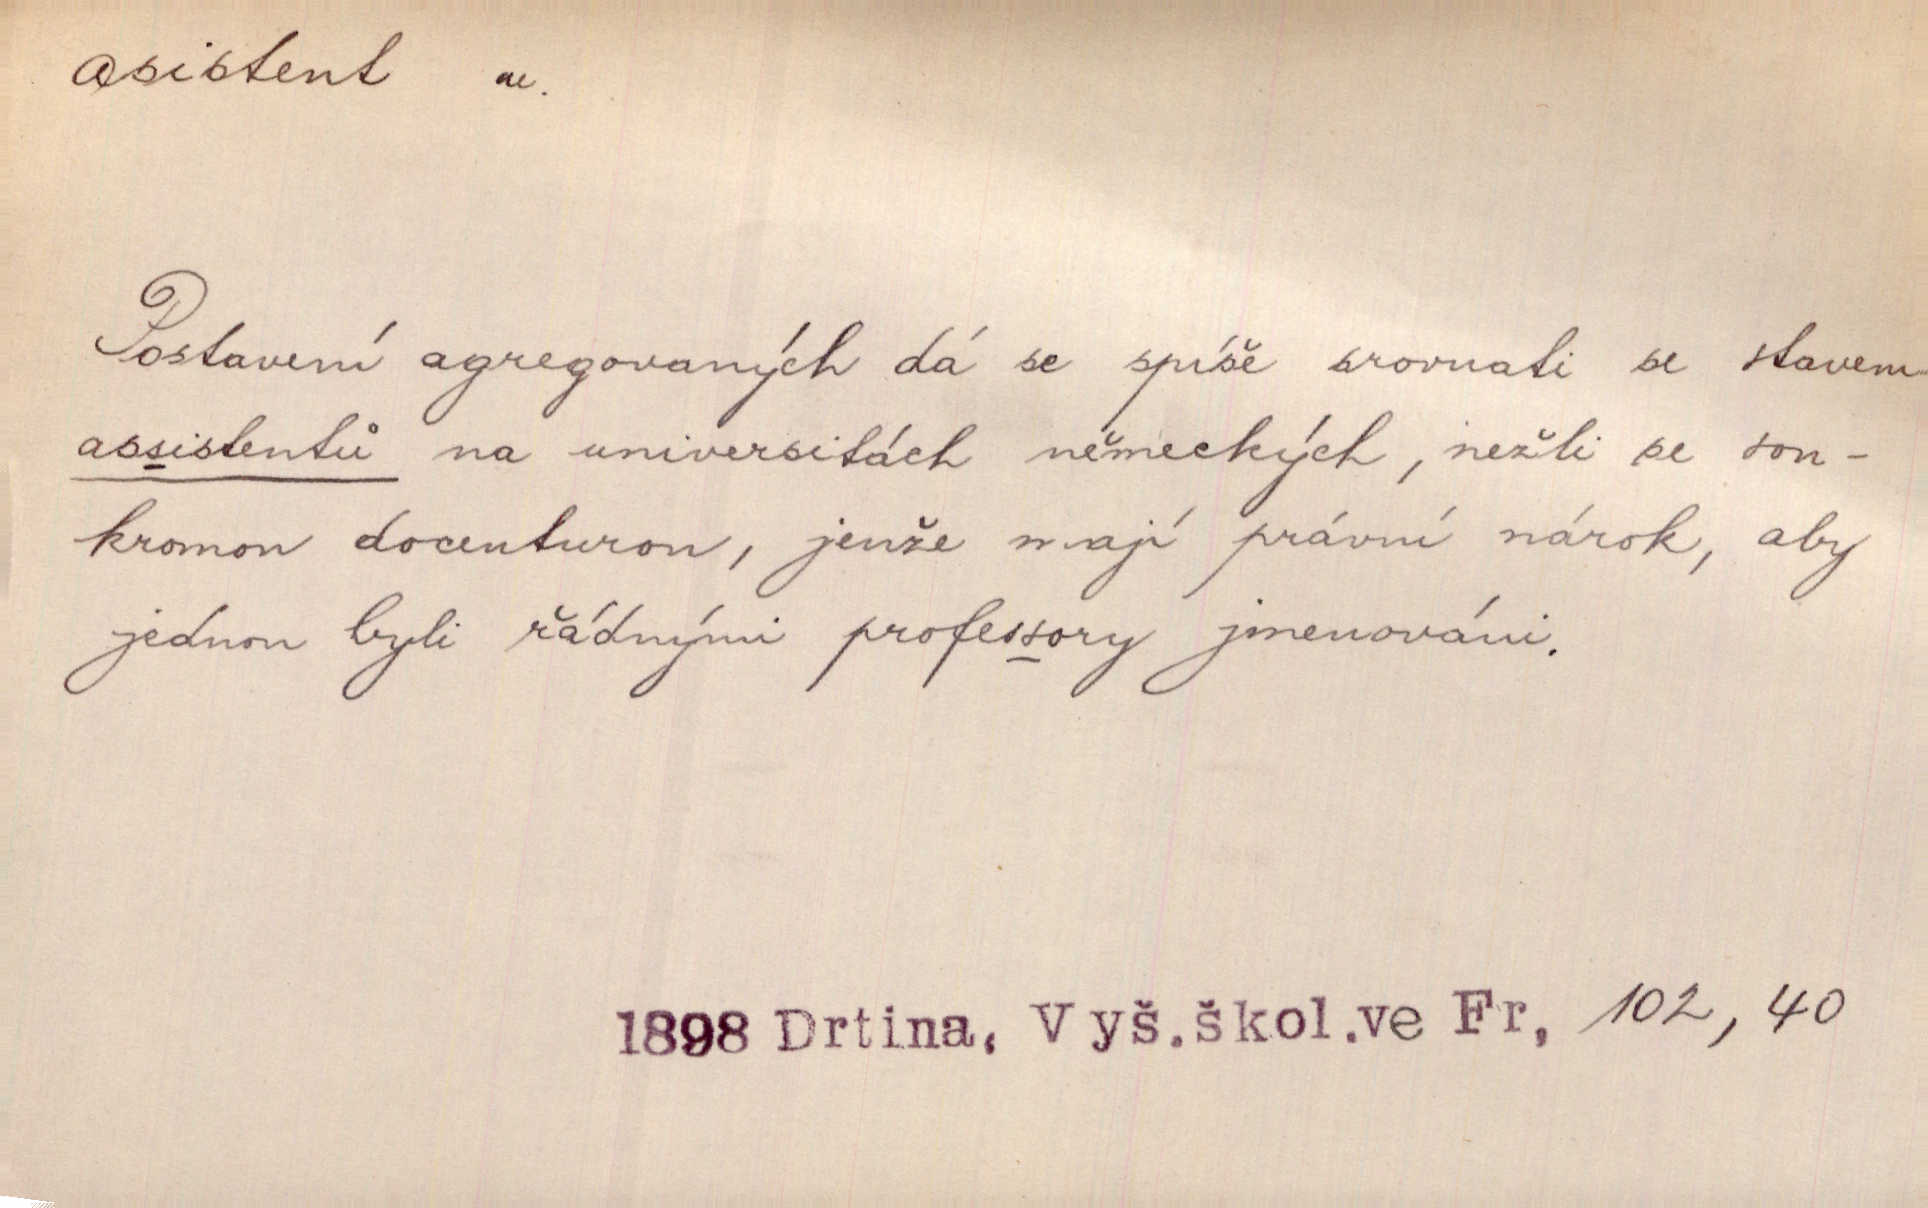 asistent m.
Postavení agregovaných dá se spíše srovnati se stavem
assistentů na universitách německých, nežli se sou-
kromou docenturou, jenže mají právní nárok, aby
jednou byli řádnými professory jmenováni.
1898 Drtina, Vyš.škol.ve Fr, 102, 40